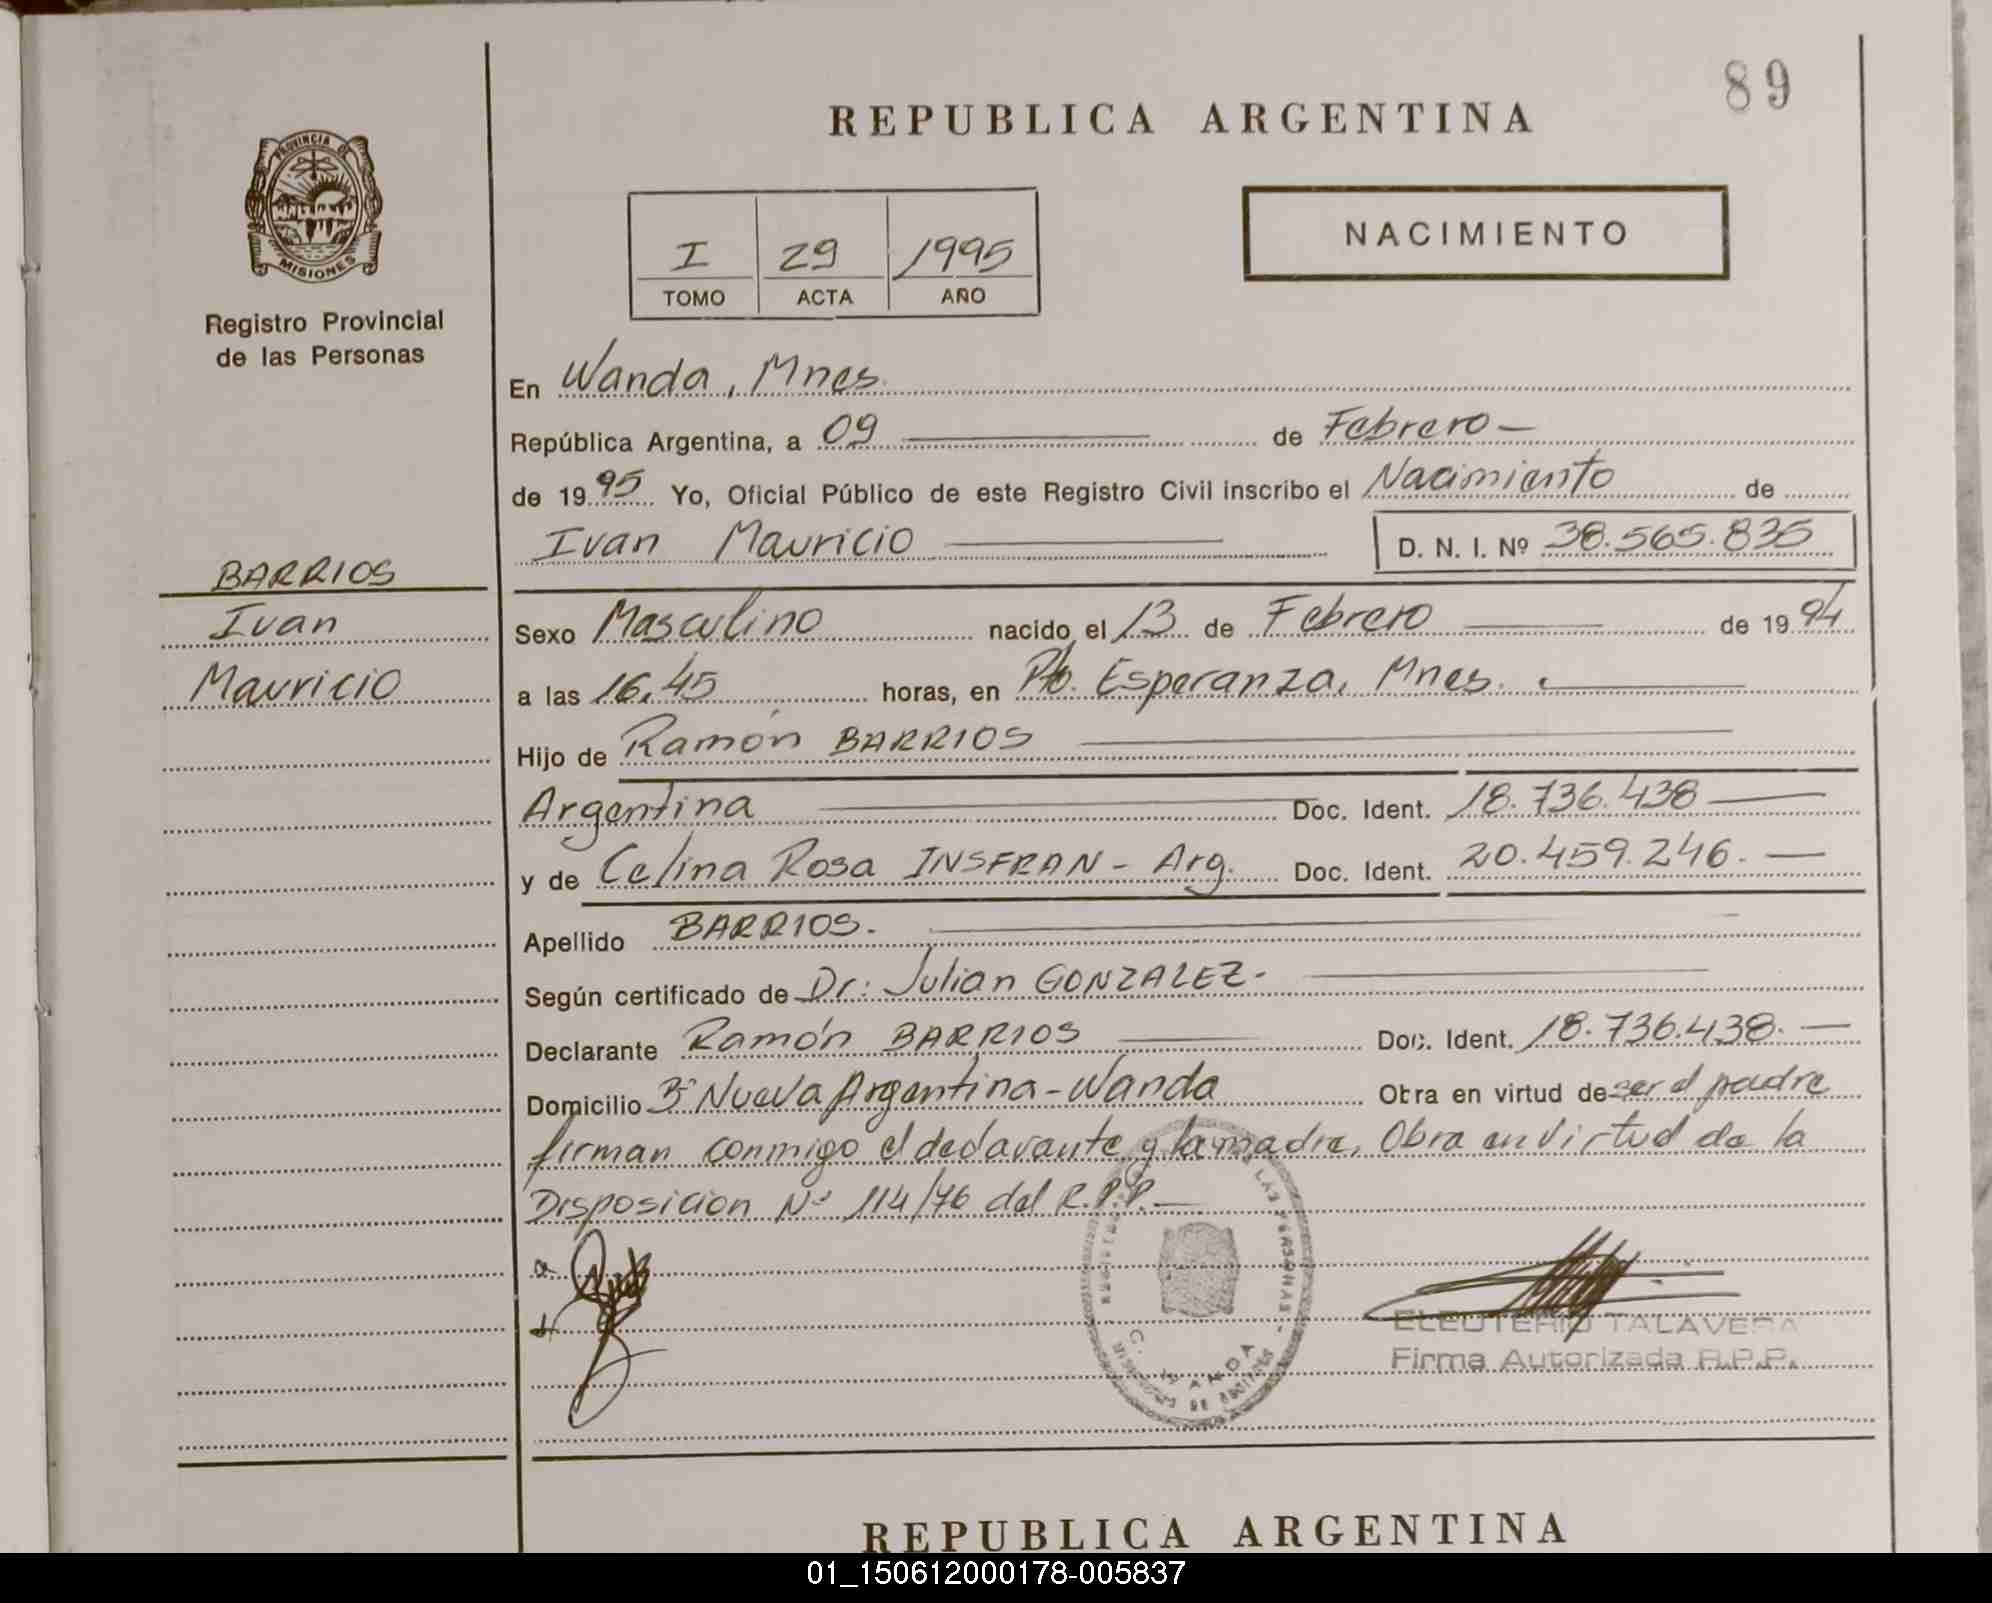 89
REPUBLICA ARGENTINA
PROVINCIA DE
MISIONES
Registro Provincial
de las Personas
I 29 1995
TOMO ACTA AÑO
NACIMIENTO
En Wanda, Mnes.
República Argentina, a 09 de Febrero
de 1995 Yo, Oficial Público de este Registro Civil inscribo el Nacimiento de
Ivan Mauricio D. N. I. Nº 38.565.835
BARRIOS
Ivan
Mauricio
Sexo Masculino nacido el 13 de Febrero de 1994
a las 16,45 horas, en Pto. Esperanza, Mnes.
Hijo de Ramón BARRIOS
Argentina Doc. Ident. 18.736.438
y de Celina Rosa INSFRAN - Arg. Doc. Ident. 20.459.246.
Apellido BARRIOS.
Según certificado de Dr: Julian GONZALEZ-
Declarante Ramón BARRIOS Doc. Ident. 18.736.438.
Domicilio Bº Nueva Argentina - Wanda Obra en virtud de ser el padre
firman conmigo el declarante y la madre, Obra en virtud de la
Disposicion Nº 114/76 del R.P.P.
LAS PERSONAS
WANDA
ELEUTERIO TALAVERA
Firma Autorizada R.P.P.
REPUBLICA ARGENTINA
01_150612000178-005837